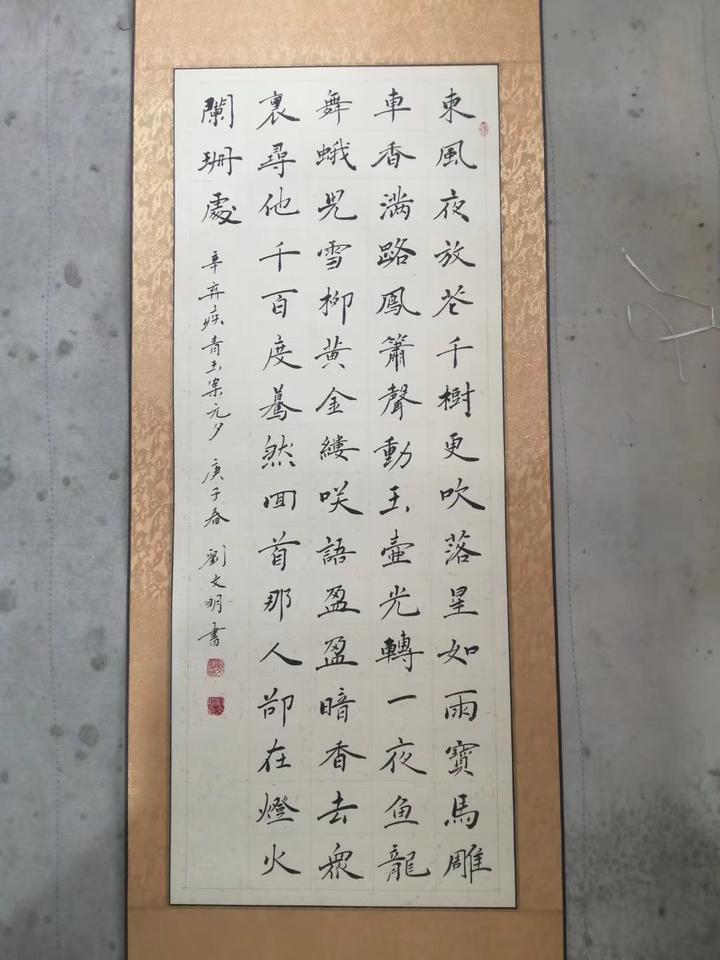 東風夜放花千樹更吹落星如雨寶馬雕
車香满路鳳簫聲動玉壺光轉一夜鱼龍
舞蛾兒雪柳黄金縷咲語盈盈暗香去衆
裏尋他千百度驀然回首那人卻在燈火
闌珊處 辛弃疾青玉案元夕 庚子春 劉文明書